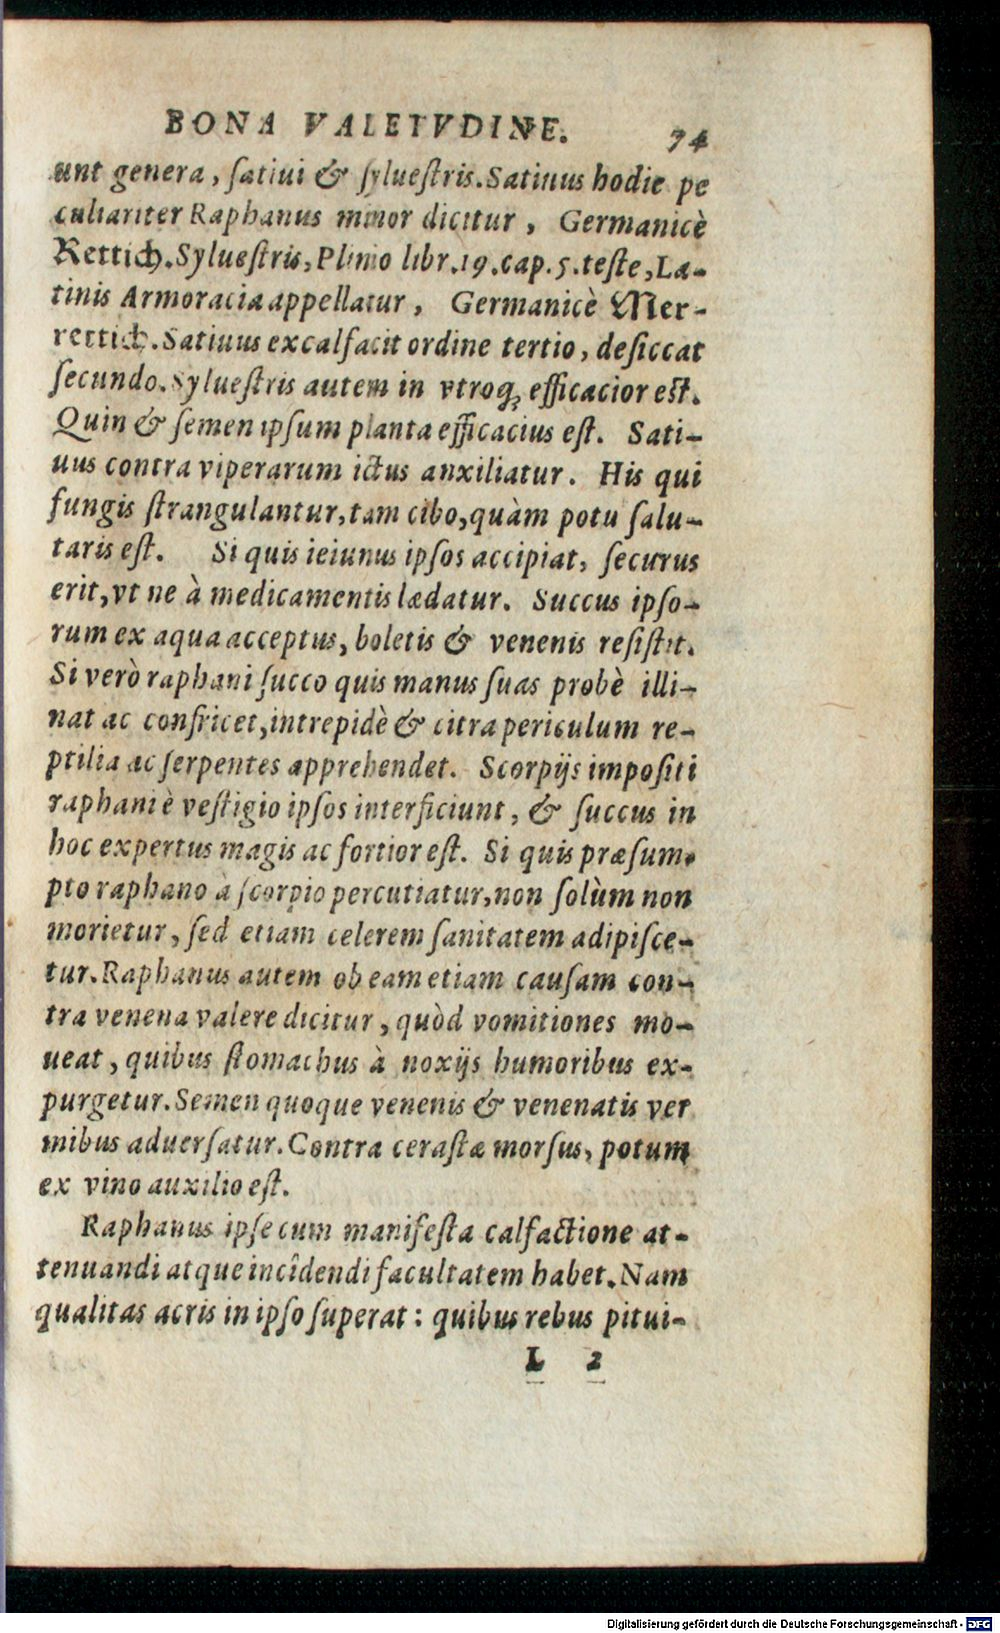 BONA VALETVDINE. 74
unt genera, ſatiui & ſylueſtris. Satiuus hodie pe
culiariter Raphanus minor dicitur, Germanicè
Rettich. Sylueſtris, Plinio libr. 19. cap. 5. teſte, La-
tinis Armoracia appellatur, Germanicè Mer-
rettich. Satiuus excalfacit ordine tertio, deſiccat
ſecundo. Sylueſtris autem in vtroq; efficacior eſt.
Quin & ſemen ipſum planta efficacius eſt. Sati-
uus contra viperarum ictus anxiliatur. His qui
fungis ſtrangulantur, tam cibo, quàm potu ſalu-
taris eſt. Si quis ieiunus ipſos accipiat, ſecurus
erit, vt ne à medicamentis lædatur. Succus ipſo-
rum ex aqua acceptus, boletis & venenis reſiſtit.
Si verò raphani ſucco quis manus ſuas probè illi-
nat ac confricet, intrepidè & citra periculum re-
ptilia ac ſerpentes apprehendet. Scorpijs impoſiti
raphani è veſtigio ipſos interficiunt, & ſuccus in
hoc expertus magis ac fortior eſt. Si quis præſum-
pto raphano à ſcorpio percutiatur, non ſolùm non
morietur, ſed etiam celerem ſanitatem adipiſce-
tur. Raphanus autem ob eam etiam cauſam con-
tra venena valere dicitur, quòd vomitiones mo-
ueat, quibus ſtomachus à noxijs humoribus ex-
purgetur. Semen quoque venenis & venenatis ver
mibus aduerſatur. Contra ceraſtæ morſus, potum
ex vino auxilio eſt.
Raphanus ipſe cum manifeſta calfactione at-
tenuandi atque incîdendi facultatem habet. Nam
qualitas acris in ipſo ſuperat: quibus rebus pitui-
L 2
Digitalisierung gefördert durch die Deutsche Forschungsgemeinschaft - DFG